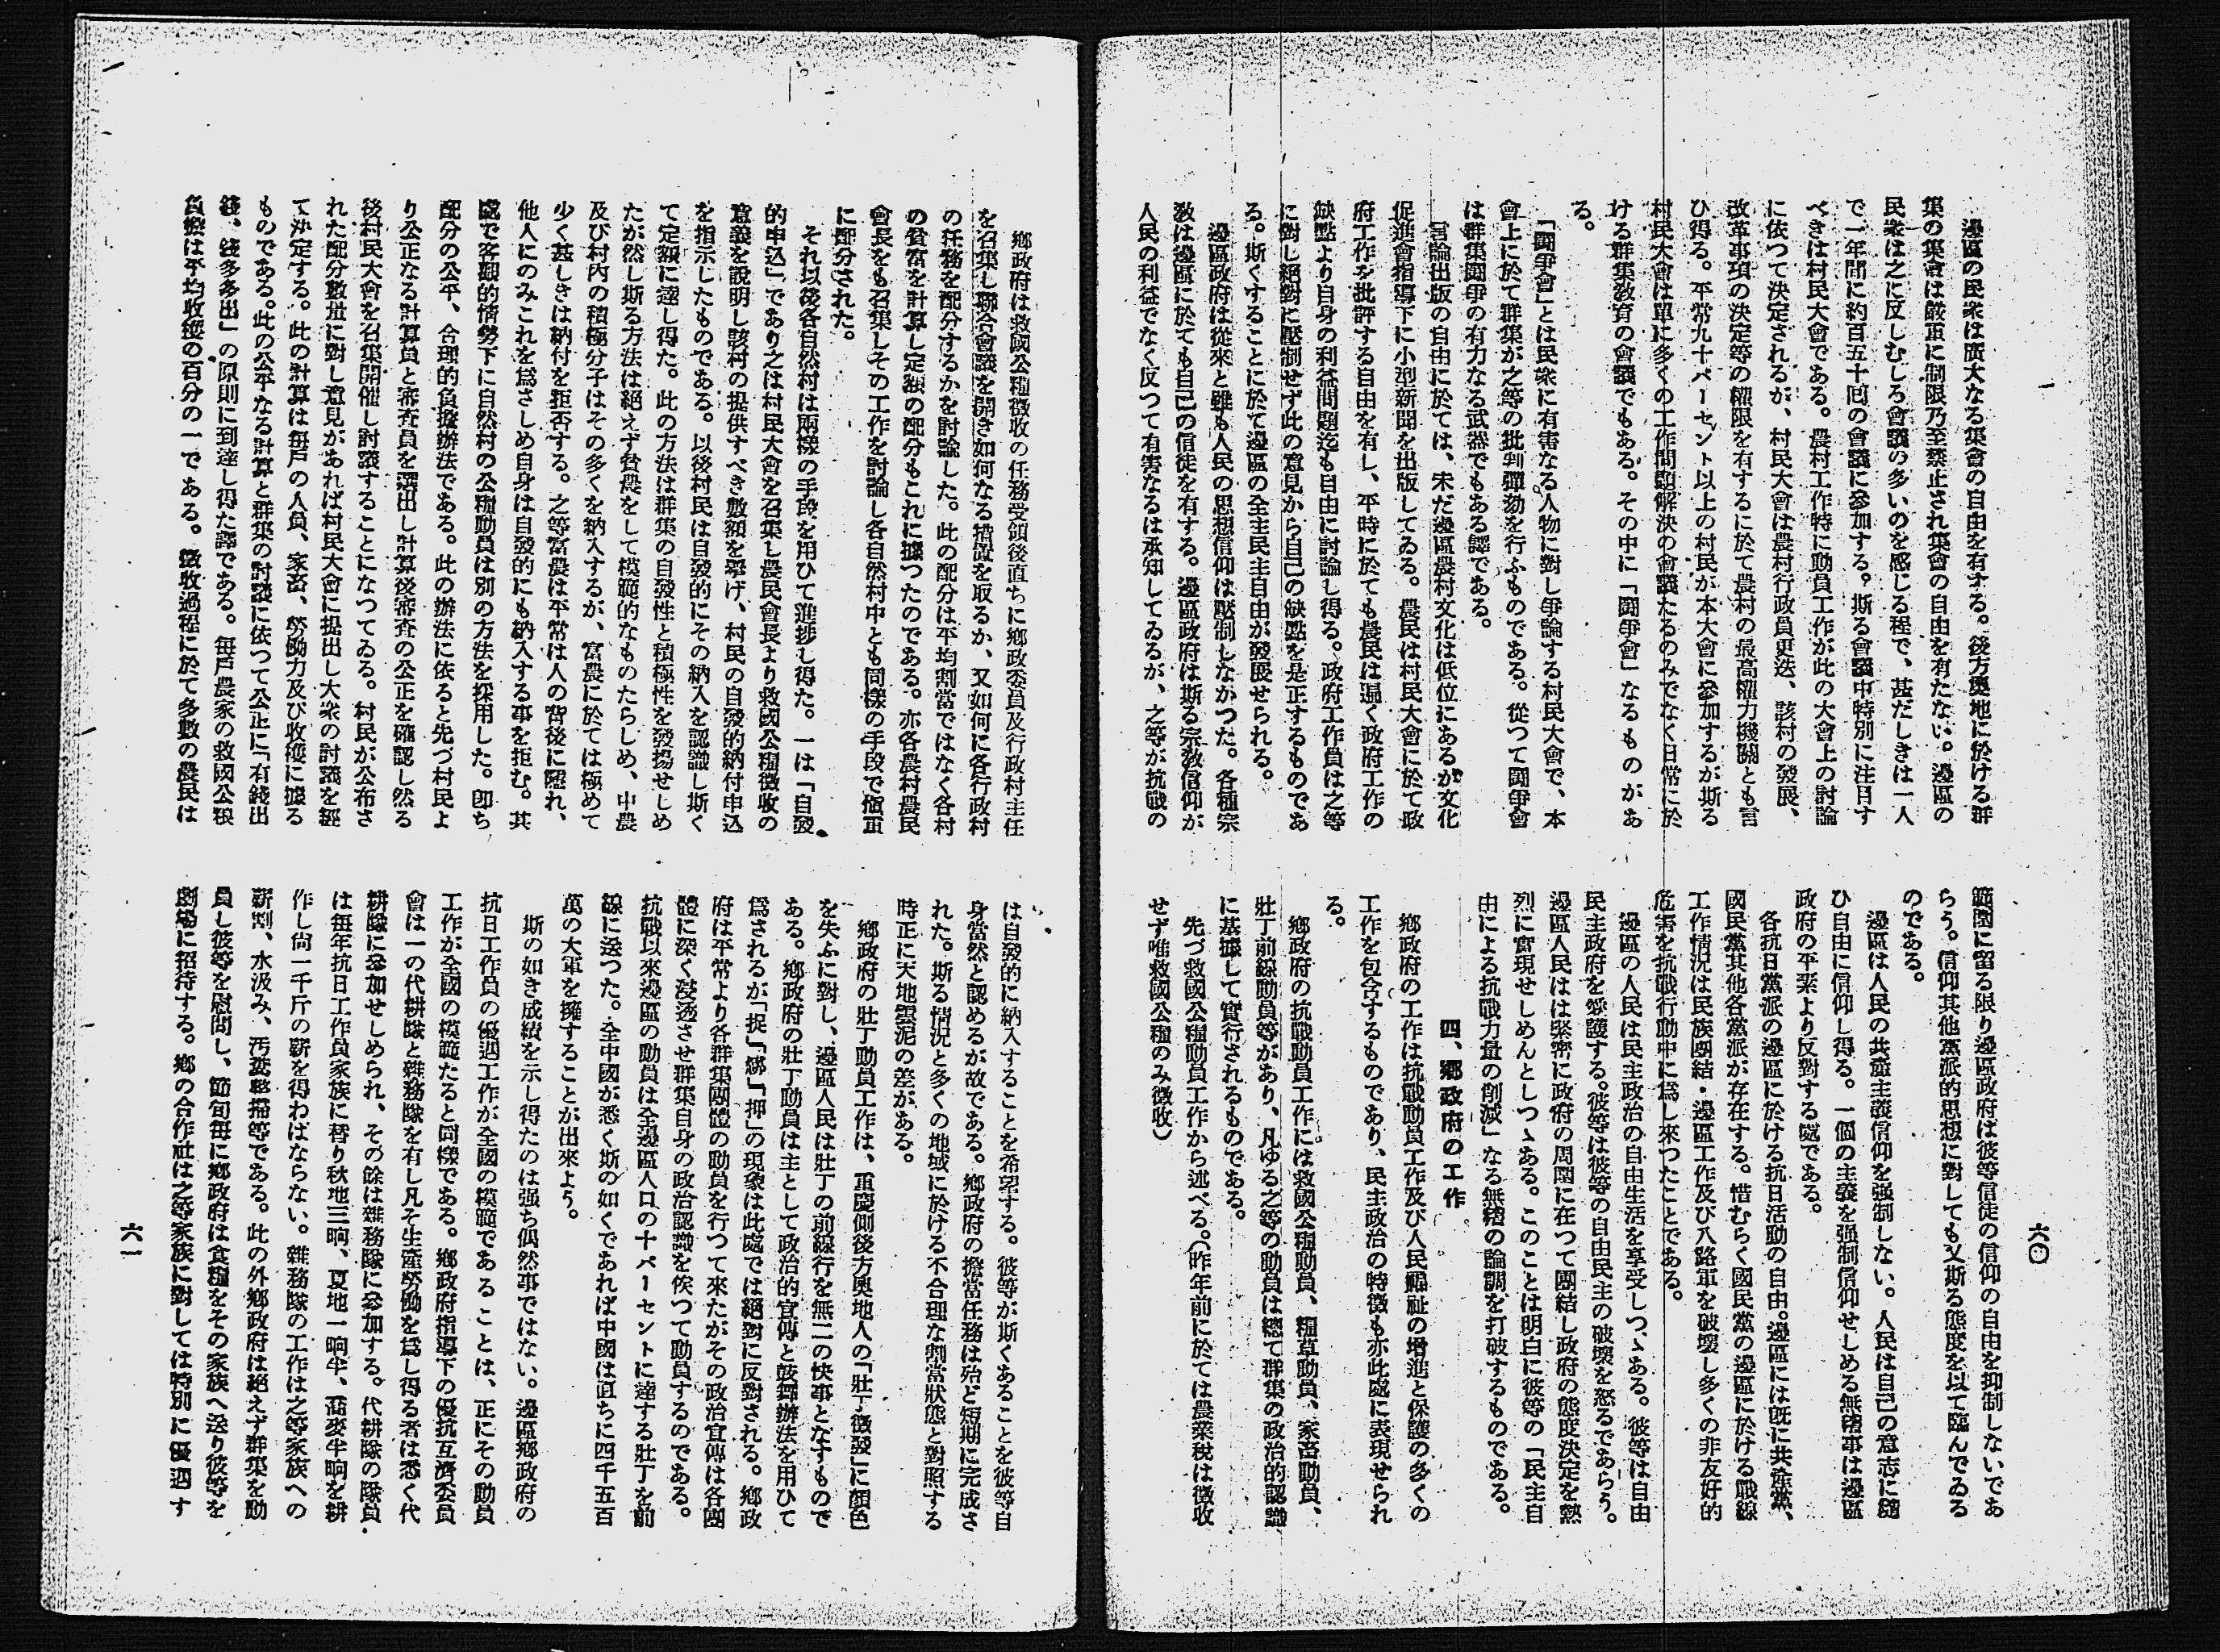 六〇
邊區の民衆は廣大なる集會の自由を有する。後方奧地に於ける群
集の集會は嚴重に制限乃至禁止され集會の自由を有たない。邊區の
民衆は之に反しむしろ會議の多いのを感じる程で、甚だしきは一人
で一年間に約百五十回の會議に參加する。斯る會議中特別に注目す
べきは村民大會である。農村工作特に動員工作が此の大會上の討論
に依つて決定されるが、村民大會は農村行政員更迭、該村の發展、
改革事項の決定等の權限を有するに於て農村の最高權力機關とも言
ひ得る。平常九十パーセント以上の村民が本大會に參加するが斯る
村民大會は單に多くの工作問題解決の會議たるのみでなく日常に於
ける群集敎育の會議でもある。その中に「鬪爭會」なるものがあ
る。
「鬪爭會」とは民衆に有害なる人物に對し爭論する村民大會で、本
會上に於て群集が之等の批判彈劾を行ふものである。從つて鬪爭會
は群集鬪爭の有力なる武器でもある譯である。
言論出版の自由に於ては、未だ邊區農村文化は低位にあるが文化
促進會指導下に小型新聞を出版してゐる。農民は村民大會に於て政
府工作を批評する自由を有し、平時に於ても農民は遍く政府工作の
缺點より自身の利益問題迄も自由に討論し得る。政府工作員は之等
に對し絕對に壓制せず此の意見から自己の缺點を是正するものであ
る。斯くすることに於て邊區の全主民主自由が發展せられる。
邊區政府は從來と雖も人民の思想信仰は壓制しなかつた。各種宗
敎は邊區に於ても自己の信徒を有する。邊區政府は斯る宗敎信仰が
人民の利益でなく反つて有害なるは承知してゐるが、之等が抗戰の
範圍に留る限り邊區政府は彼等信徒の信仰の自由を抑制しないであ
らう。信仰其他黨派的思想に對しても又斯る態度を以て臨んでゐる
のである。
邊區は人民の共產主義信仰を强制しない。人民は自己の意志に隨
ひ自由に信仰し得る。一個の主義を强制信仰せしめる無稽事は邊區
政府の平素より反對する處である。
各抗日黨派の邊區に於ける抗日活動の自由。邊區には旣に共產黨、
國民黨其他各黨派が存在する。惜むらく國民黨の邊區に於ける戰線
工作情況は民族團結・邊區工作及び八路軍を破壞し多くの非友好的
危害を抗戰行動中に爲し來つたことである。
邊區の人民は民主政治の自由生活を享受しつゝある。彼等は自由
民主政府を愛護する。彼等は彼等の自由民主の破壞を怒るであらう。
邊區人民はは緊密に政府の周圍に在つて團結し政府の態度決定を熱
烈に實現せしめんとしつゝある。このことは明白に彼等の「民主自
由による抗戰力量の削減」なる無稽の論調を打破するものである。
四、鄕政府の工作
鄕政府の工作は抗戰動員工作及び人民福祉の增進と保護の多くの
工作を包含するものであり、民主政治の特徵も亦此處に表現せられ
る。
鄕政府の抗戰動員工作には救國公糧動員、糧草動員、家畜動員、
壯丁前線動員等があり、凡ゆる之等の動員は總て群集の政治的認識
に基據して實行されるものである。
先づ救國公糧動員工作から述べる。(昨年前に於ては農業稅は徵收
せず唯救國公糧のみ徵收)
鄕政府は救國公糧徵收の任務受領後直ちに鄕政委員及行政村主任
を召集し聯合會議を開き如何なる措置を取るか、又如何に各行政村
の任務を配分するかを討論した。此の配分は平均割當ではなく各村
の貧富を計算し定額の配分もこれに據つたのである。亦各農村農民
會長をも召集しその工作を討論し各自然村中とも同樣の手段で愼重
に配分された。
それ以後各自然村は兩樣の手段を用ひて進捗し得た。一は「自發
的申込」であり之は村民大會を召集し農民會長より救國公糧徵收の
意義を說明し該村の提供すべき數額を擧げ、村民の自發的納付申込
を指示したものである。以後村民は自發的にその納入を認識し斯く
て定額に達し得た。此の方法は群集の自發性と積極性を發揚せしめ
たが然し斯る方法は絕えず貧農をして模範的なものたらしめ、中農
及び村內の積極分子はその多くを納入するが、富農に於ては極めて
少く甚しきは納付を拒否する。之等富農は平常は人の背後に隱れ、
他人にのみこれを爲さしめ自身は自發的にも納入する事を拒む。其
處で客觀的情勢下に自然村の公糧動員は別の方法を採用した。卽ち
配分の公平、合理的負擔辦法である。此の辦法に依ると先づ村民よ
り公正なる計算員と審査員を選出し計算後審査の公正を確認し然る
後村民大會を召集開催し討議することになつてゐる。村民が公布さ
れた配分數量に對し意見があれば村民大會に提出し大衆の討議を經
て決定する。此の計算は每戶の人員、家畜、勞働力及び收穫に據る
ものである。此の公平なる計算と群集の討議に依つて公正に「有錢出
錢、錢多多出」の原則に到達し得た譯である。每戶農家の救國公糧
負擔は平均收穫の百分の一である。徵收過程に於て多數の農民は
は自發的に納入することを希望する。彼等が斯くあることを彼等自
身當然と認めるが故である。鄕政府の擔當任務は殆ど短期に完成さ
れた。斯る情況と多くの地域に於ける不合理な割當狀態と對照する
時正に天地雲泥の差がある。
鄕政府の壯丁動員工作は、重慶側後方奧地人の「壯丁徵發」に顏色
を失ふに對し、邊區人民は壯丁の前線行を無二の快事となすもので
ある。鄕政府の壯丁動員は主として政治的宣傳と鼓舞辦法を用ひて
爲されるが「捉」「綁」「押」の現象は此處では絕對に反對される。鄕政
府は平常より各群集團體の動員を行つて來たがその政治宣傳は各團
體に深く浸透させ群集自身の政治認識を俟つて動員するのである。
抗戰以來邊區の動員は全邊區人口の十パーセントに達する壯丁を前
線に送つた。全中國が悉く斯の如くであれば中國は直ちに四千五百
萬の大軍を擁することが出來よう。
斯の如き成績を示し得たのは强ち偶然事ではない。邊區鄕政府の
抗日工作員の優遇工作が全國の模範であることは、正にその動員
工作が全國の模範たると同樣である。鄕政府指導下の優抗互濟委員
會は一の代耕隊と雜務隊を有し凡そ生產勞働を爲し得る者は悉く代
耕隊に參加せしめられ、その餘は雜務隊に參加する。代耕隊の隊員
は每年抗日工作員家族に替り秋地三晌、夏地一晌半、蕎麥半晌を耕
作し尙一千斤の薪を得わばならない。雜務隊の工作は之等家族への
薪割、水汲み、汚穢整掃等である。此の外鄕政府は絕えず群集を動
員し彼等を慰問し、節旬每に鄕政府は食糧をその家族へ送り彼等を
劇場に招待する。鄕の合作社は之等家族に對しては特別に優遇す
六一